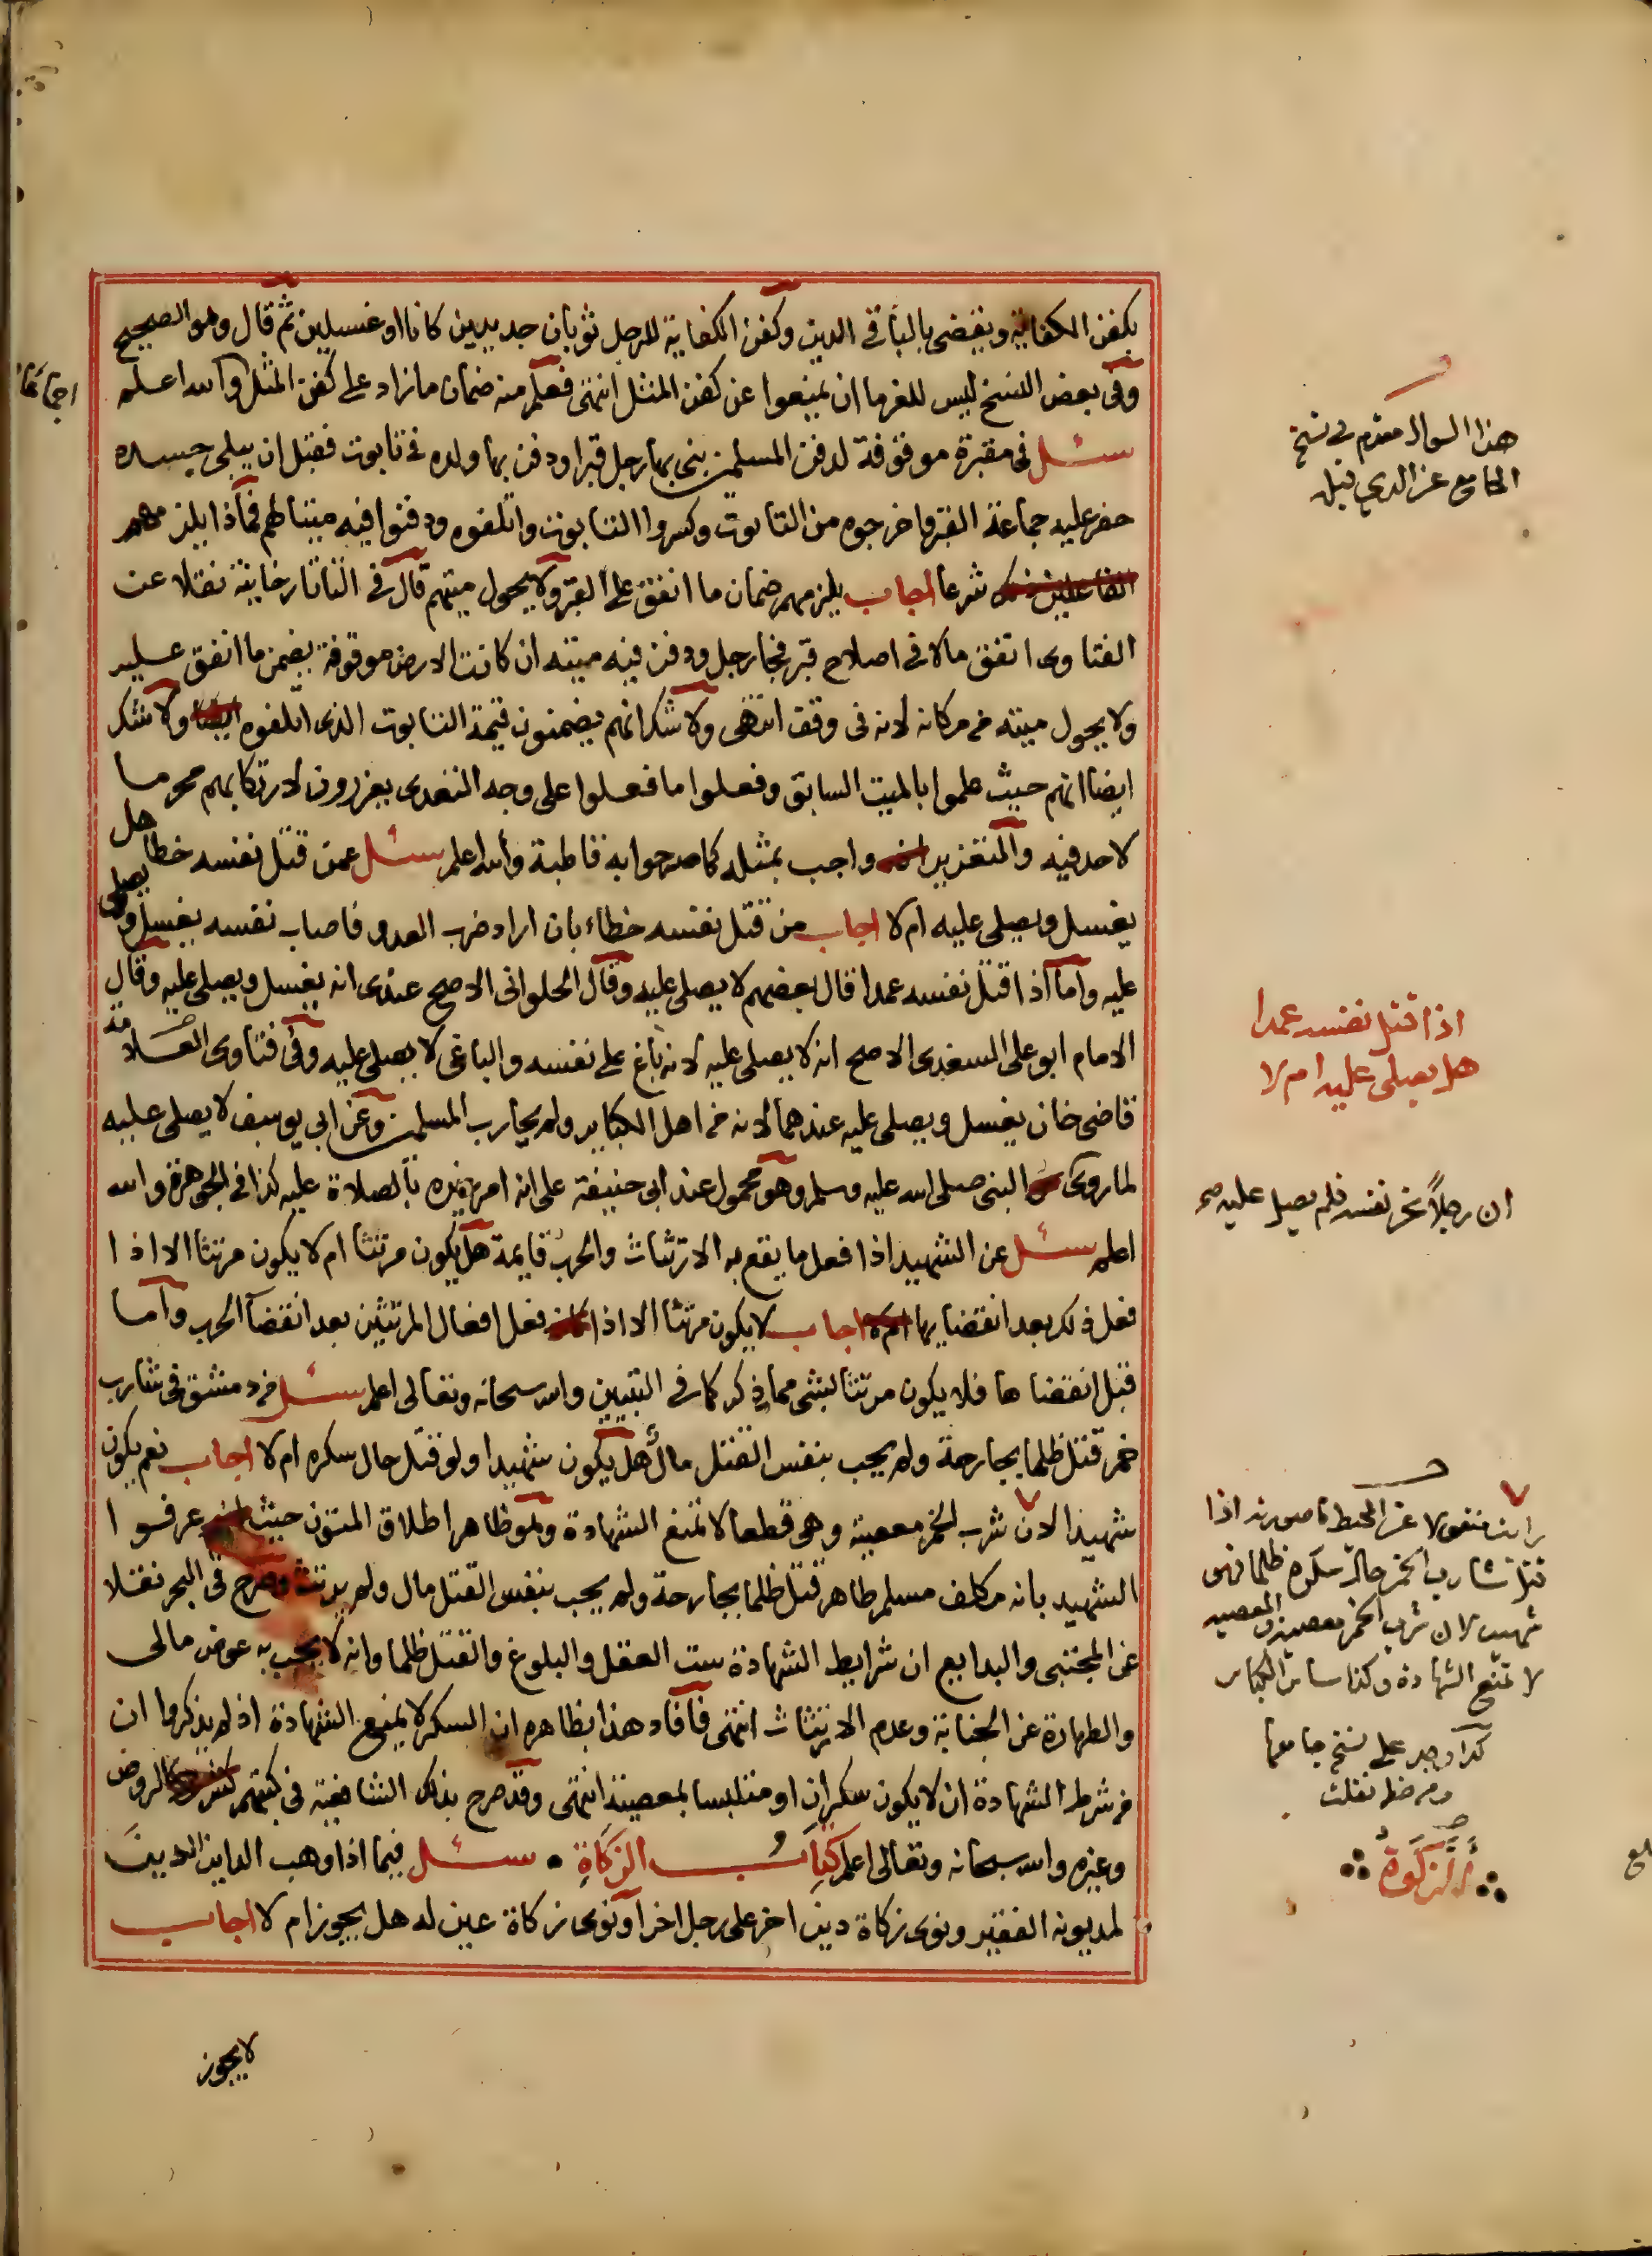 بكفن الكفاية ويقضى بالباقي الدين وكفن الكفاية للرجل ثوبان جديدين كانا او غسيلين ثم قال وهو الصحيح
وفي بعض النسخ ليس للغرما ان يمنعوا عن كفن المثل انتهى فعلم منه ضمان ما زاد على كفن المثل والله اعلم
سئل في مقبرة موقوفة لدفن المسلمين بنى بها رجل قبرا ودفن بها ولده في تابوت فقبل ان يبلى جسده
حفر عليه جماعة القبر واخرجوه من التابوت وكسروا التابوت واتلفوه ودفنوا فيه ميتا لهم فماذا يلزمهم
شرعا اجاب يلزمهم ضمان ما انفق على القبر ولا يحول ميتهم قال في التاتارخانية نقلا عن
الفتاوى انفق مالا في اصلاح قبر فجا رجل ودفن فيه ميته ان كانت الارض موقوفة يضمن ما انفق عليه
ولا يحول ميته من مكانه لانه في وقف انتهى ولا شك انهم يضمنون قيمة التابوت الذى اتلفوه ولا شك
ايضا انهم حيث علموا بالميت السابق وفعلوا ما فعلوا على وجه التعدى يعزرون لارتكابهم محرما
لا حد فيه والتعزير واجب بمثله كما صرحوا به قاطبة والله اعلم سئل عمن قتل نفسه خطا هل
يغسل ويصلى عليه ام لا اجاب من قتل نفسه خطاء بان اراد ضرب العدو فاصاب نفسه يغسل ويصلى
عليه واما اذا قتل نفسه عمدا قال بعضهم لا يصلى عليه وقال الحلوانى الاصح عندى انه يغسل ويصلى عليه وقال
الامام ابو على السغدى الاصح انه لا يصلى عليه لانه باغ على نفسه والباغى لا يصلى عليه وفي فتاوى العلامة
قاضى خان يغسل ويصلى عليه عندهما لانه من اهل الكباير ولم يحارب المسلمين وعن ابي يوسف لا يصلى عليه
لما روى النبى صلى الله عليه وسلم وهو محمول عند ابى حنيفة على انه امر غيره بالصلاة عليه كذا في الجوهرة والله
اعلم سئل عن الشهيد اذا فعل ما يقع به الارتثاث والحرب قايمة هل يكون مرتثا ام لا يكون مرتثا الا اذا
فعل ذلك بعد انقضايها اجاب لا يكون مرتثا الا اذا فعل افعال المرتثين بعد انقضآ الحرب واما
قبل انقضاها فلا يكون مرتثا بشى مما ذكر كما في التبيين والله سبحانه وتعالى اعلم سئل من دمشق في شارب
خمر قتل ظلما بجارحة ولم يجب بنفس القتل مال هل يكون شهيدا ولو قتل حال سكره ام لا اجاب نعم يكون
شهيدا لان شرب الخمر معصية وهى قطعا لا تمنع الشهادة وهو ظاهر اطلاق المتون حيث عرفوا
الشهيد بانه مكلف مسلم طاهر قتل ظلما بجارحة ولم يجب بنفس القتل مال ولم يرتث وصرح في البحر نقلا
عن المجتبى والبدايع ان شرايط الشهادة ست العقل والبلوغ والقتل ظلما وانه لا يجب به عوض مالى
والطهارة عن الجنابة وعدم الارتثاث انتهى فافاد هذا بظاهره ان السكر لا يمنع الشهادة اذ لم يذكروا ان
من شرط الشهادة ان لا يكون سكران او متلبسا بمعصية انتهى وقد صرح بذلك الشافعية في كتبهم كالروض
وغيره والله سبحانه وتعالى اعلم كتاب الزكاة سئل فيما اذا وهب الداين الدين
لمديونه الفقير ونوى زكاة دين اخر على رجل اخر او نوى زكاة عين له هل يجوز ام لا اجاب
لا يجوز
هذا السوال مقدم في نسخ
الجامع عن الذي قبله
اذا قتل نفسه عمدا
هل يصلى عليه ام لا
ان رجلاً نحر نفسه فلم يصل عليه
رايت منقولا عن المحيط ما صورته اذا
قتل شارب الخمر حال سكره ظلما فهو
شهيد لان شرب الخمر معصية والمعصية
لا تمنع الشهادة وكذا سائر الكبائر
كذا وجد على نسخ جامعها
ومن خط نقلت
الزكوة